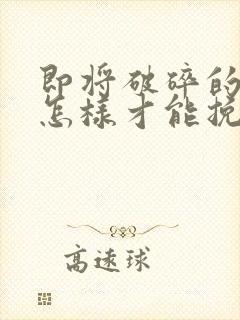 即将破碎的
怎样才能挽
高速球